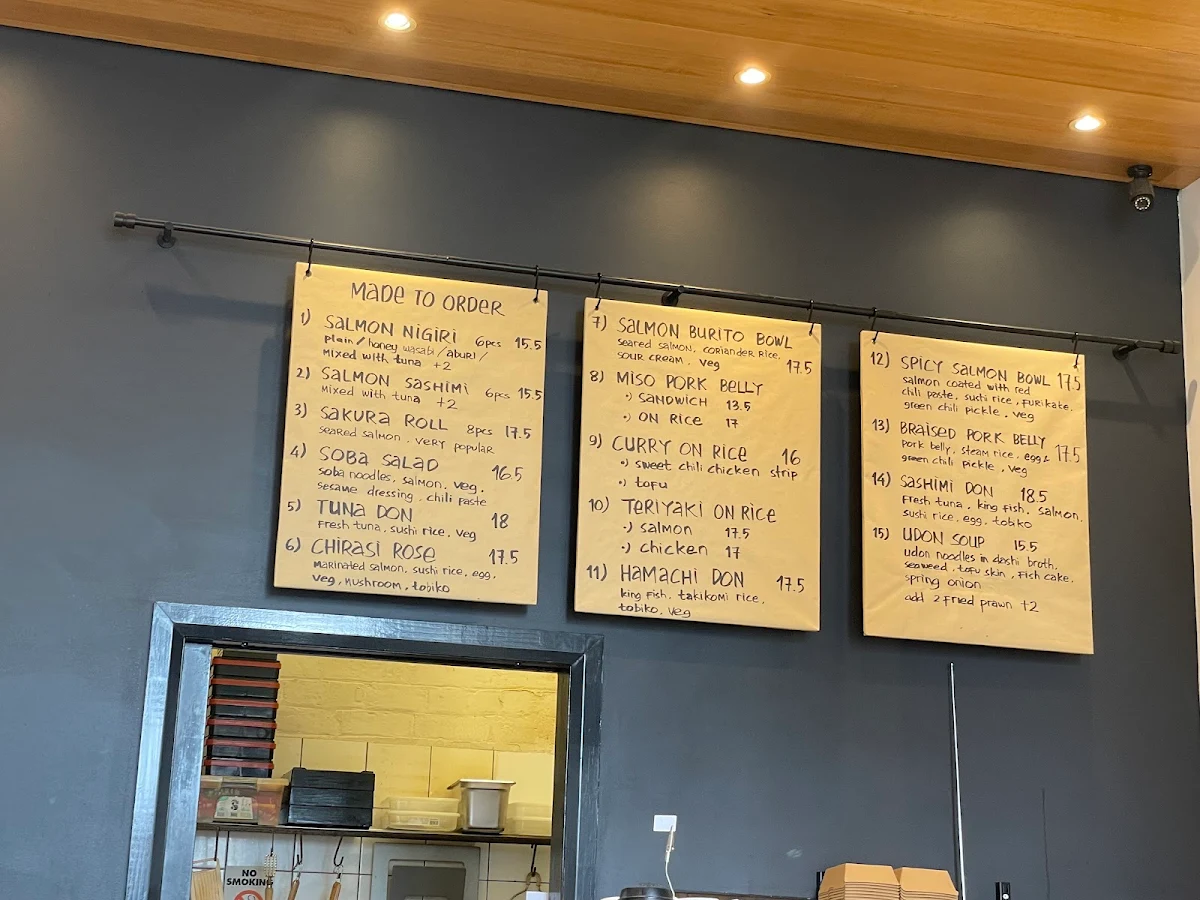 MADE TO ORDER
1) SALMON NIGIRI 6pcs 15.5
plain / honey wasabi / aburi /
mixed with tuna +2
2) SALMON SASHIMI 6pcs 15.5
mixed with tuna +2
3) SAKURA ROLL 8pcs 17.5
seared salmon. very popular
4) SOBA SALAD 16.5
soba noodles, salmon, veg.
sesame dressing. chili paste
5) TUNA DON 18
Fresh tuna. sushi rice. veg
6) CHIRASI ROSE 17.5
marinated salmon. sushi rice. egg.
veg, mushroom, tobiko
7) SALMON BURITO BOWL
seared salmon, coriander rice.
sour cream. veg 17.5
8) MISO PORK BELLY
•) SANDWICH 13.5
•) ON RICE 17
9) CURRY ON RICE 16
•) sweet chili chicken strip
•) tofu
10) TERIYAKI ON RICE
•) salmon 17.5
•) chicken 17
11) HAMACHI DON 17.5
king fish, takikomi rice,
tobiko, veg
12) SPICY SALMON BOWL 17.5
salmon coated with red
chili paste, sushi rice, furikake.
green chili pickle. veg
13) BRAISED PORK BELLY 17.5
pork belly, steam rice, egg &
green chili pickle, veg
14) SASHIMI DON 18.5
Fresh tuna, king fish, salmon.
sushi rice, egg. tobiko
15) UDON SOUP 15.5
udon noodles in dashi broth,
seaweed, tofu skin, fish cake,
spring onion
add 2 fried prawn +2
NO
SMOKING